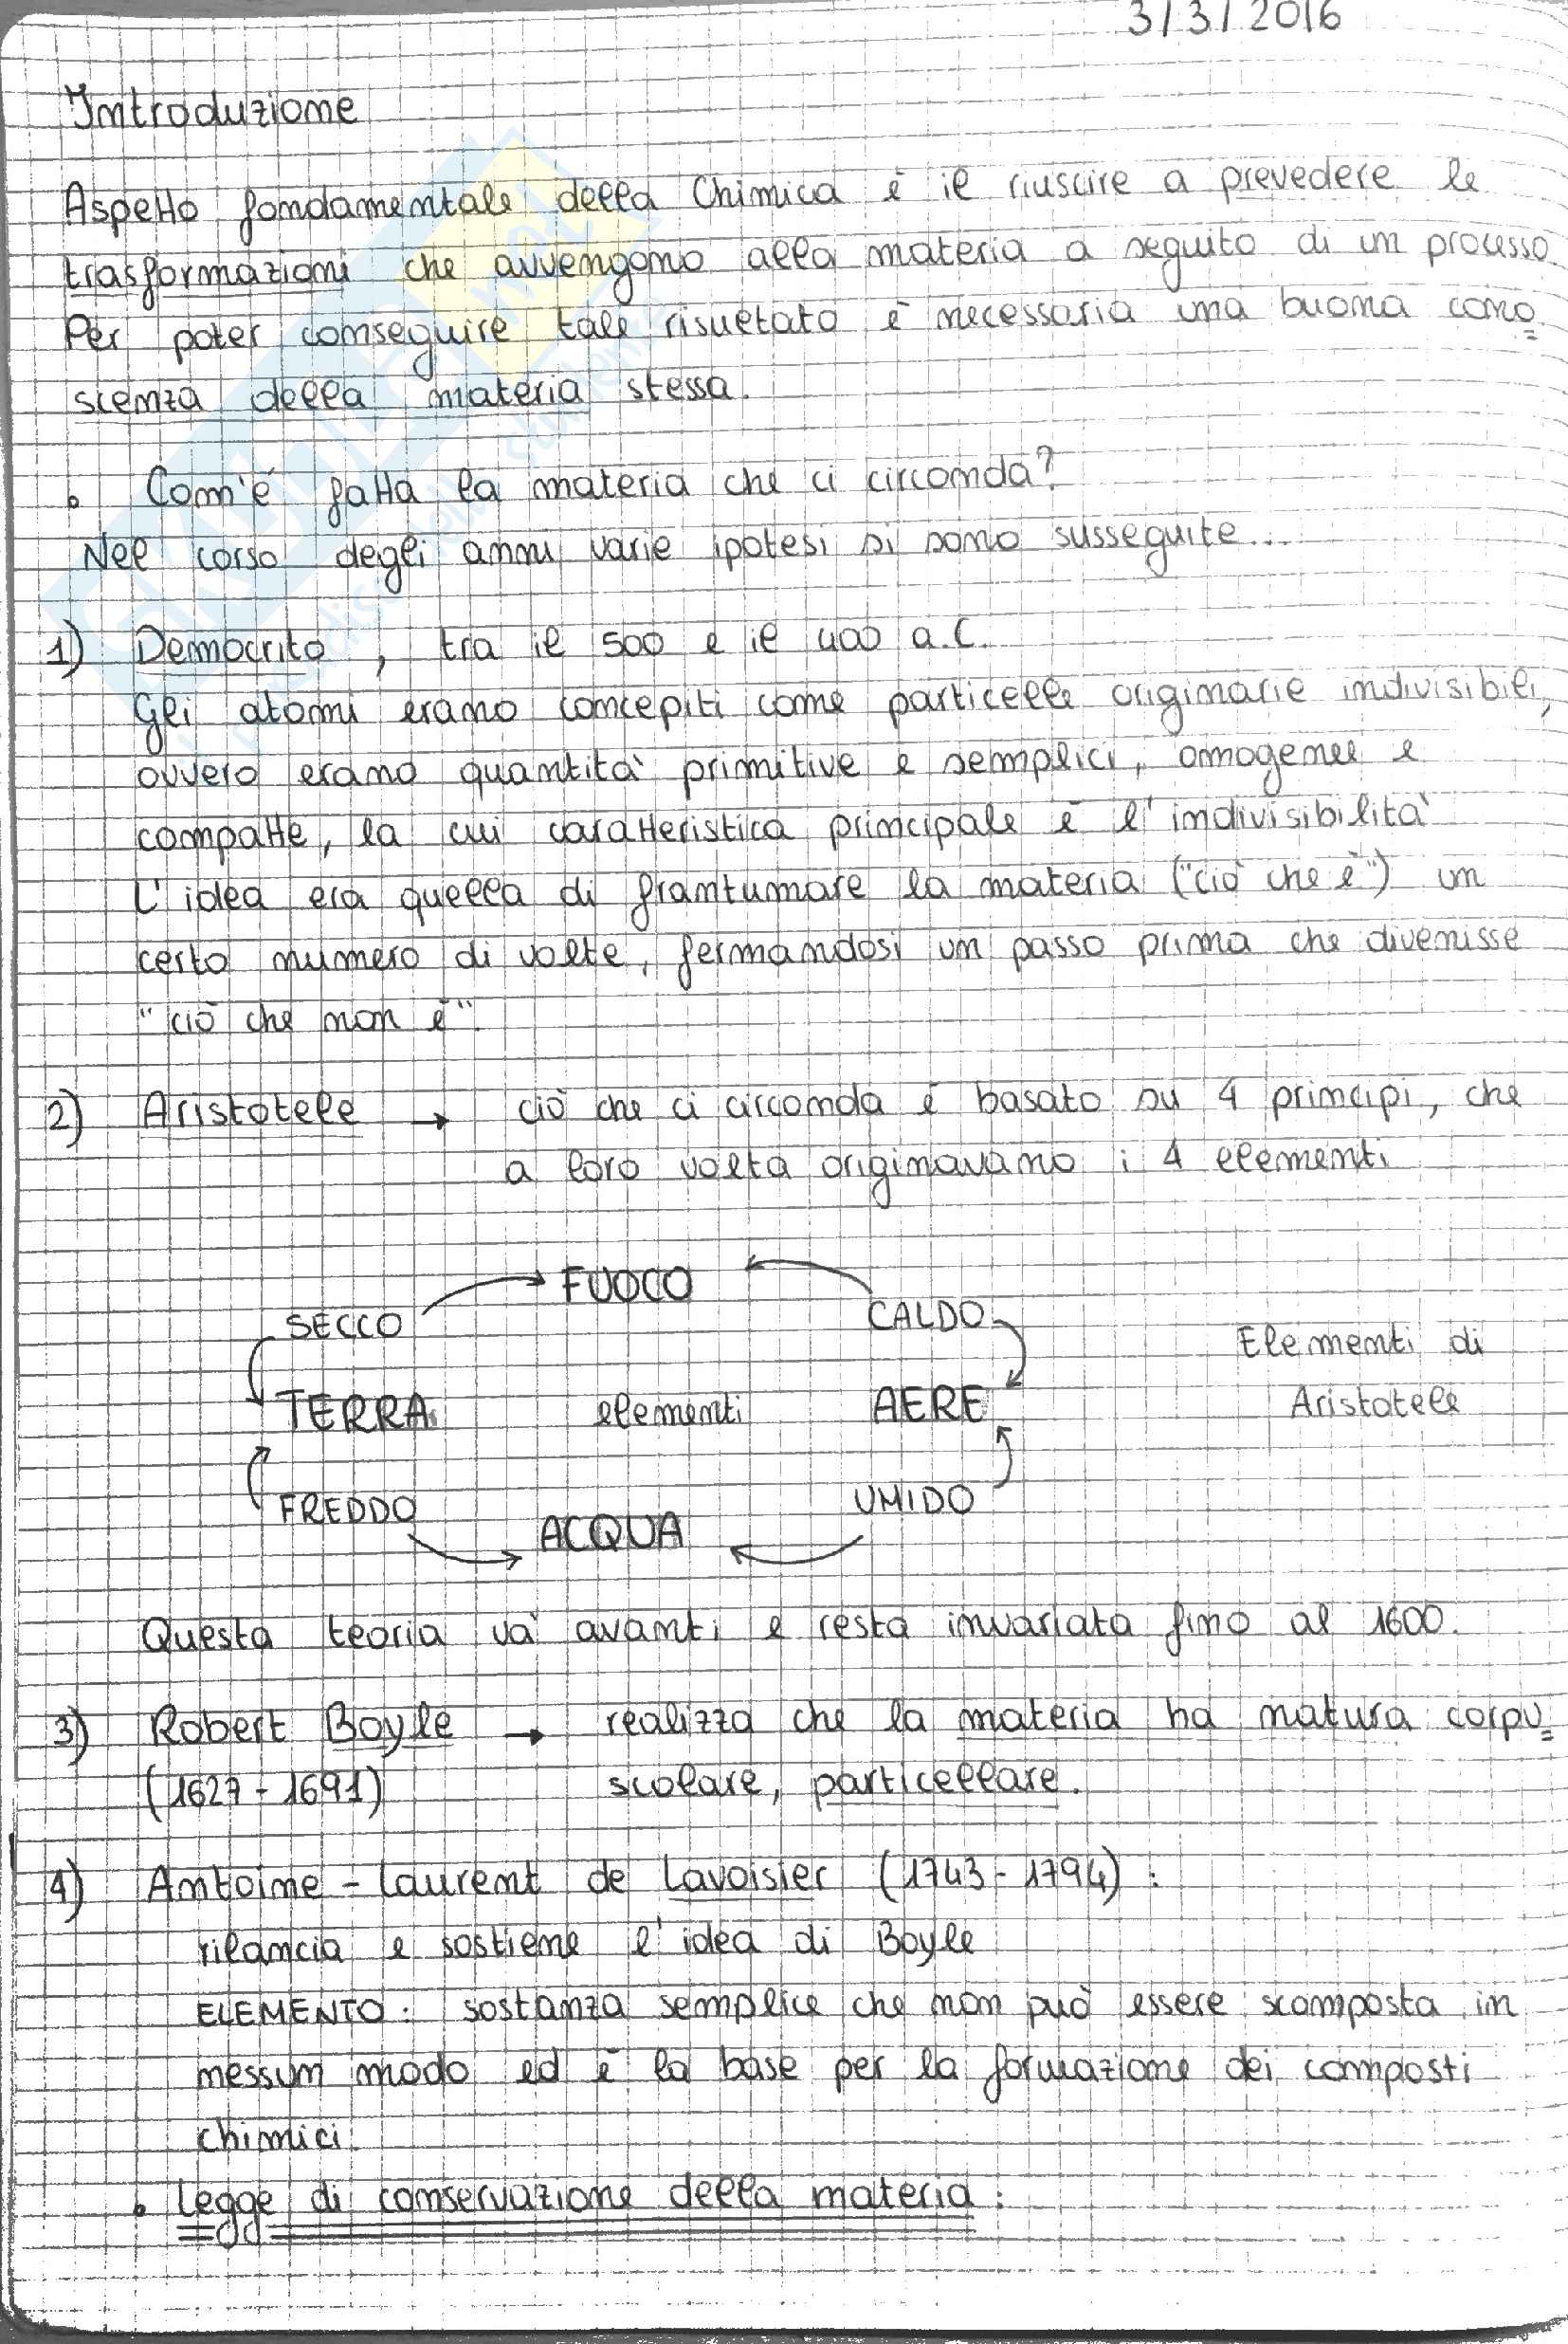 3/3/2016
Introduzione
Aspetto fondamentale della Chimica è il riuscire a prevedere le
trasformazioni che avvengono alla materia a seguito di un processo.
Per poter conseguire tale risultato è necessaria una buona cono=
scenza della materia stessa.
• Com'è fatta la materia che ci circonda?
Nel corso degli anni varie ipotesi si sono susseguite...
1) Democrito, tra il 500 e il 400 a.C.
Gli atomi erano concepiti come particelle originarie indivisibili,
ovvero erano quantità primitive e semplici, omogenee e
compatte, la cui caratteristica principale è l'indivisibilità
L'idea era quella di frantumare la materia ("ciò che è") un
certo numero di volte, fermandosi un passo prima che divenisse
"ciò che non è".
2) Aristotele → ciò che ci circonda è basato su 4 principi, che
a loro volta originavano i 4 elementi
FUOCO
SECCO CALDO
Elementi di
TERRA elementi AERE
Aristotele
FREDDO UMIDO
ACQUA
Questa teoria và avanti e resta invariata fino al 1600.
3) Robert Boyle → realizza che la materia ha natura corpu=
(1627-1691) scolare, particellare.
4) Antoine-Laurent de Lavoisier (1743-1794):
rilancia e sostiene l'idea di Boyle
ELEMENTO: sostanza semplice che non può essere scomposta in
nessun modo ed è la base per la formazione dei composti
chimici.
• Legge di conservazione della materia: